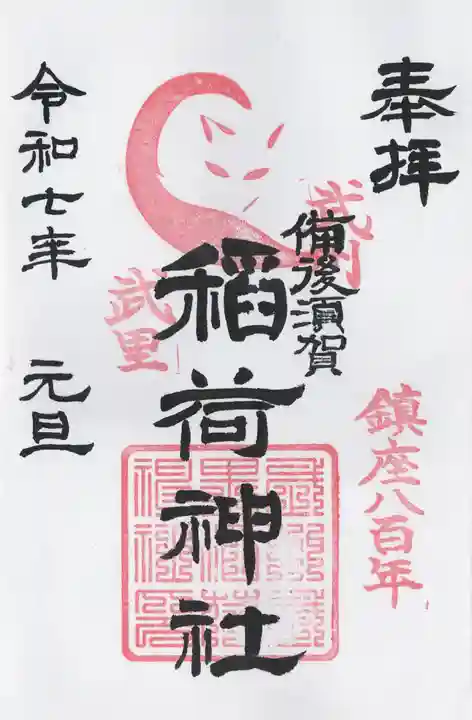 奉拝
武州
鎮座八百年
備後須賀
稲荷神社
武里
令和七年 元旦